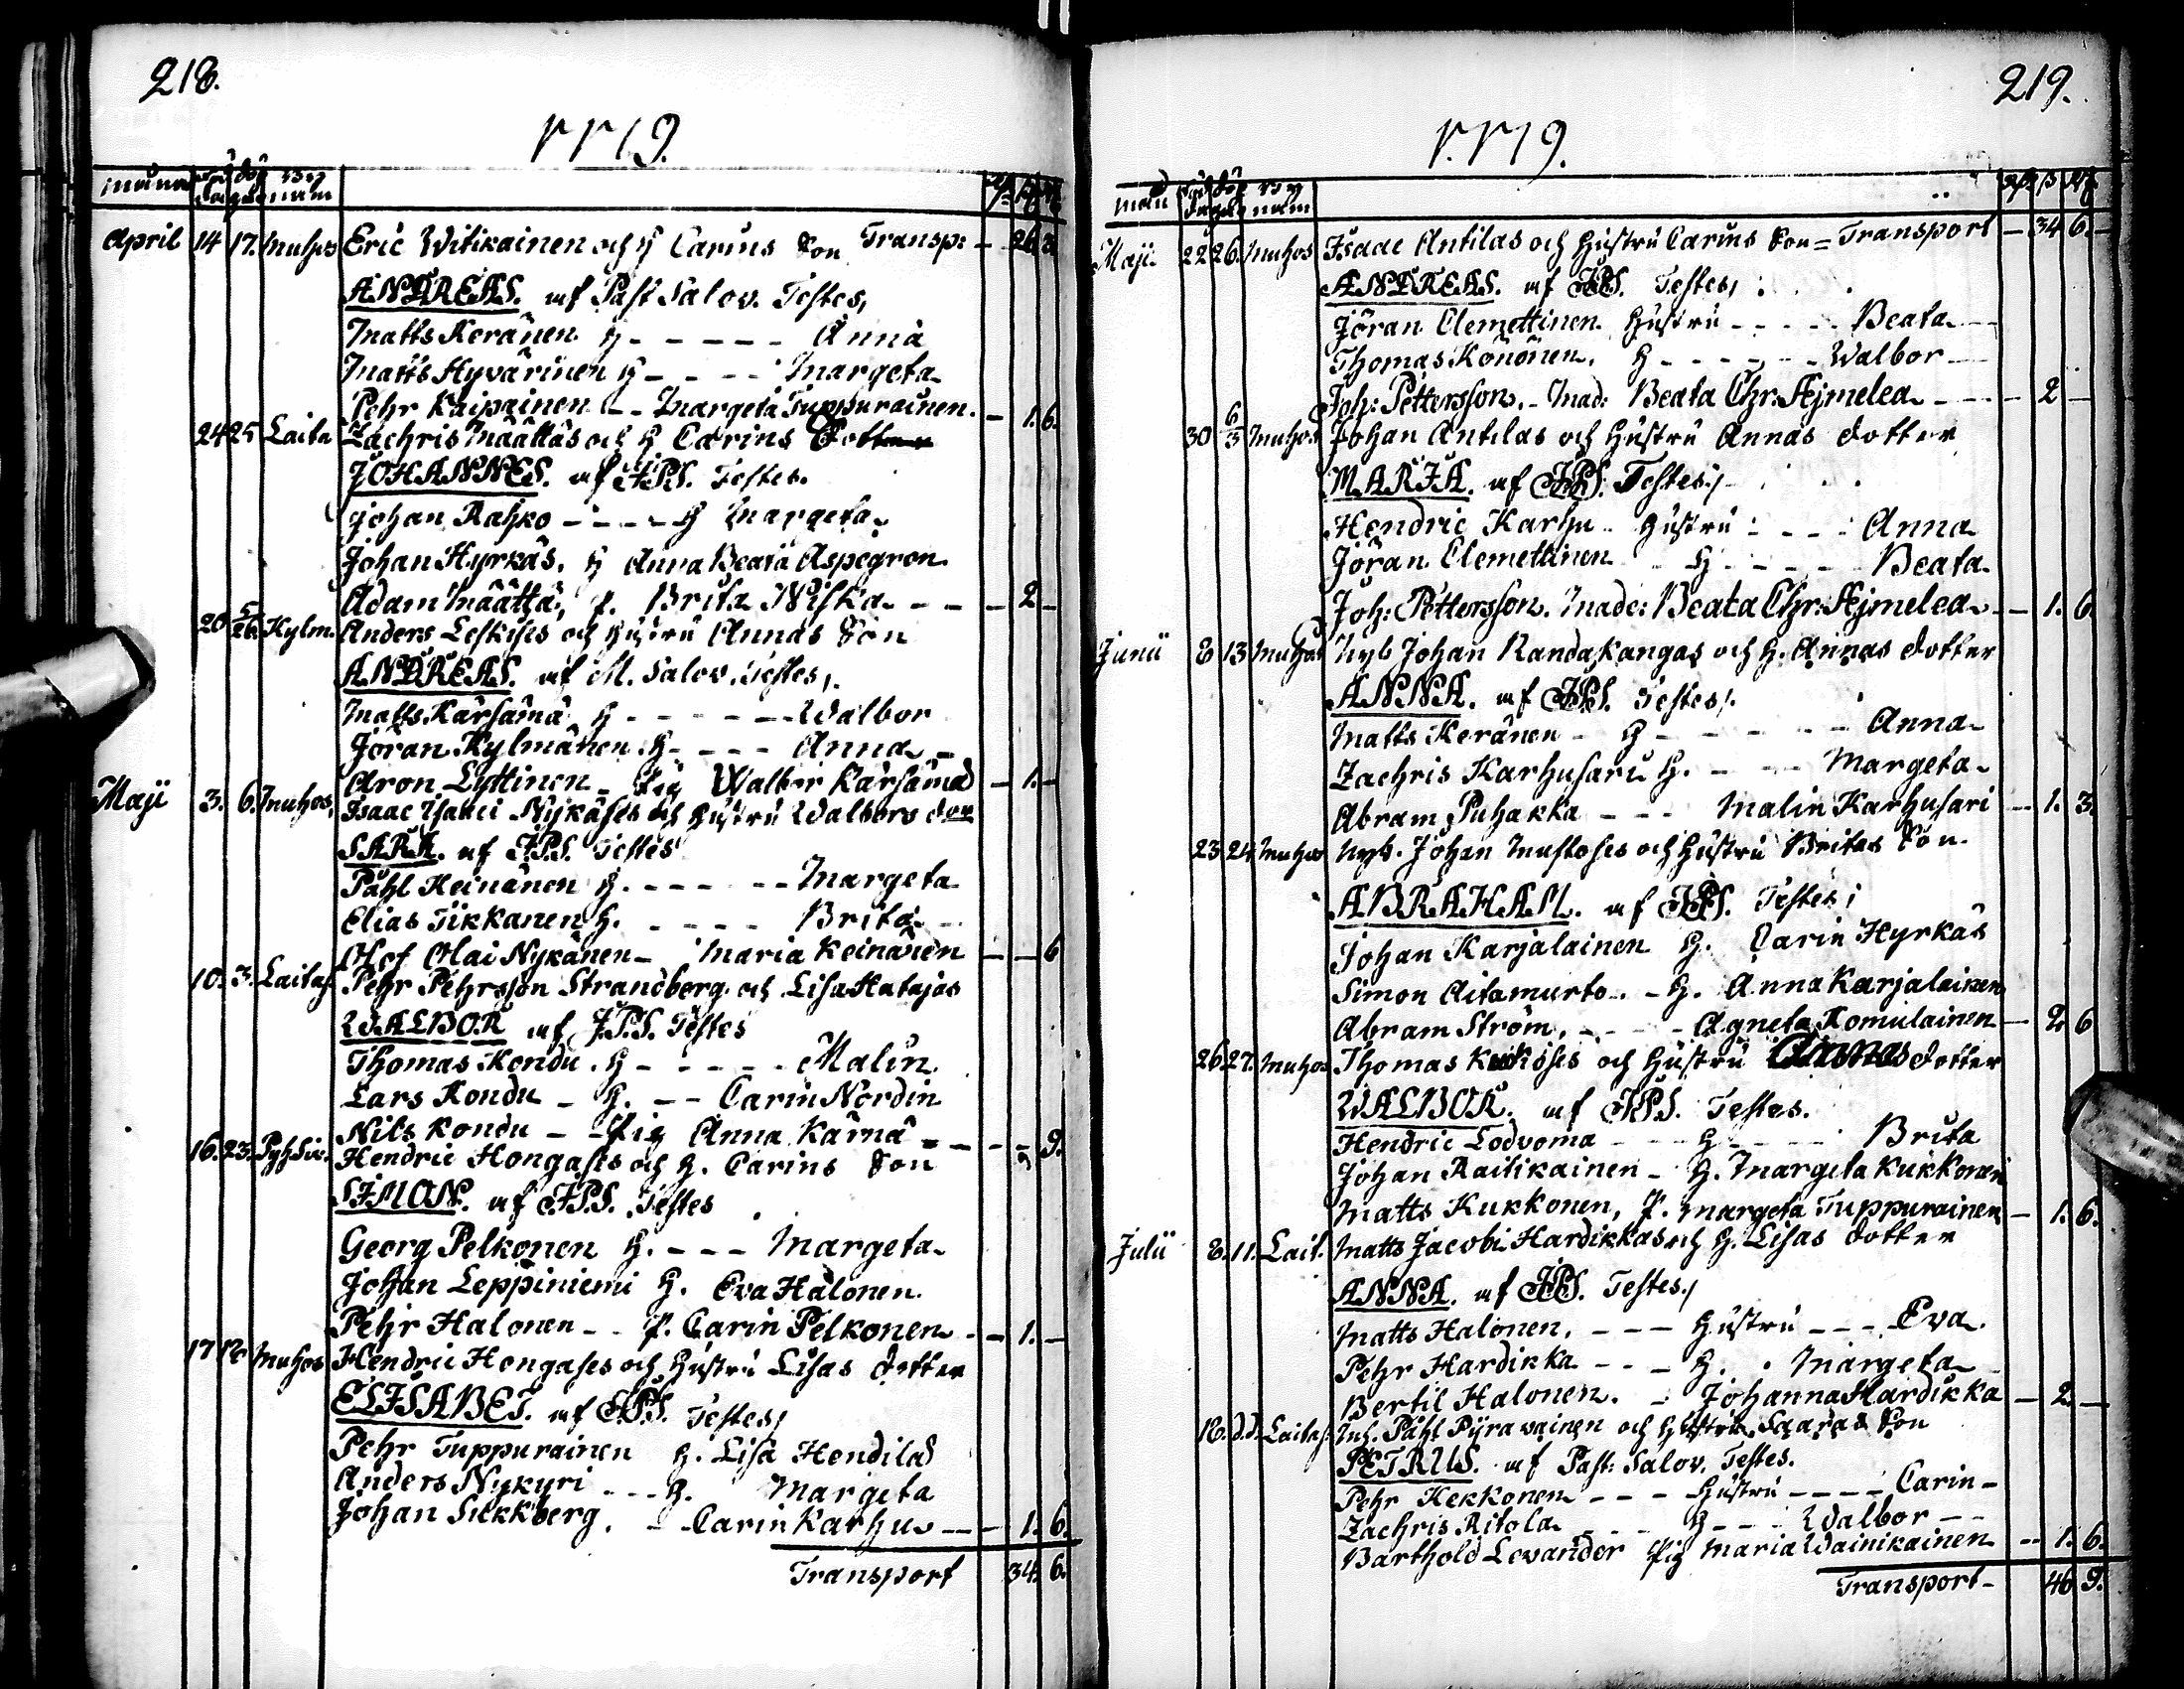 218.
1779.
Månad
April 14 17. Muhos Eric Witikainen och H Carins Son Transp: — 26. 3.
ANDREAS. af Past Salov. Testes,
Matts Keränen H - - - - - Anna
Matts Hyvärinen H - - - - Margeta
Pehr Kaipainen - - Margeta Tuppurainen. — 1. 6.
24 25 Laita Zachris Määttäs och H Carins
JOHANNES. af JPS. Testes.
Johan Rahko - - - - H Margeta.
Johan Hyrkäs, H Anna Beata Aspegren
Adam Määttä, P. Brita Niska - - — 2 —
20 5/26. Kylm. Anders Leskises och Hustru Annas Son
ANDREAS. af M. Salov. Testes,
Matts Kärsämä H - - - - - Walbor
Jöran Kylmänen H - - - - Anna -
Aron Lyttinen - Pig Walbor Kärsämä — 1. —
Maji 3. 6. Muhos, Isaac Isaaci Nykäses och Hustru Walbors dott
SARA. af JPS. Testes
Påhl Keinänen H. - - - - - Margeta
Elias Tikkanen H. - - - - - Brita
Olof Olai Nykänen - Maria Keinänen — — 6
10. 3. Laitas. Pehr Pehrsson Strandberg och Lisa Hatajas
WALBOR af JPS. Testes
Thomas Kondu. H - - - - - Malin.
Lars Kondu - H. - - Carin Nordin
Nils Kondu - - Pig Anna Kärnä - — - 9.
16. 23. Pyhsiv. Hendric Hongases och H. Carins Son
SIMON. af JPS. Testes
Georg Pelkonen H. - - - Margeta
Johan Leppiniemi H. Eva Halonen.
Pehr Halonen - - P. Carin Pelkonen - — 1. —
17 18 Muhos Hendric Hongases och Hustru Lisas dotter
ELISABET. af JPS. Testes,
Pehr Tuppurainen H. Lisa Hendilä
Anders Nykyri - - - H. Margeta
Johan Silkkberg. - - Carin Karhu - - — 1. 6.
Transport 34. 6.
219.
1779.
Månad
Maji 22 26. Muhos Isaac Antilas och Hustru Carins Son = Transport — 34 6.
ANDREAS. af JPS. Testes,
Jöran Clemettinen Hustru - - - - - Beata
Thomas Könönen. H - - - - - Walbor
Joh: Pettersson. - Mad: Beata Chr: Æjmelea - - — 2 —
30 6/3 Muhos Johan Antilas och Hustru Annas dotter
MARIA. af JPS. Testes,
Hendric Karhu - Hustru - - - - Anna
Jöran Clemettinen H - - - - - Beata
Joh: Pettersson. Made: Beata Chr: Æjmelea — 1. 6.
Junii 8 13 Muhos Nyb Johan Randakangas och H. Annas dotter
ANNA. af JPS. Testes,
Matts Keränen - H - - - - - Anna
Zachris Karhusaru H. - - - Margeta
Abram Puhakka - - - Malin Karhusari — 1. 3.
23 24 Muhos Nyb. Johan Mustoses och Hustru Britas Son.
ABRAHAM. af JPS. Testes,
Johan Karjalainen H. Carin Hyrkäs
Simon Aitamurto - - H. Anna Karjalainen
Abram Ström, - - - - Agneta Komulainen — 2. 6
26. 27. Muhos Thomas Kukkoses och Hustru Annas dotter
WALBOR. af JPS. Testes.
Hendric Lodvoma - - - H - - - - Brita
Johan Raitikainen - H. Margeta Kukkonen
Matts Kukkonen, P. Margeta Tuppurainen — 1. 6.
Julii 8. 11. Lait. Matts Jacobi Hardikkas och H. Lisas dotter
ANNA. af JPS. Testes,
Matts Halonen, - - - Hustru - - - Eva
Pehr Hardikka - - - H. Margeta
Bertil Halonen. - Johanna Hardikka — 2. —
18. d.d. Laitas. Inh. Påhl Pyravainen och Hustru Saaras Son
PETRUS. af Past: Salov. Testes.
Pehr Kekkonen - - - Hustru - - - - Carin -
Zachris Ritola - - - H - - - Walbor - -
Barthold Levander Pig Maria Wainikainen — 1. 6.
Transport - 46 9.